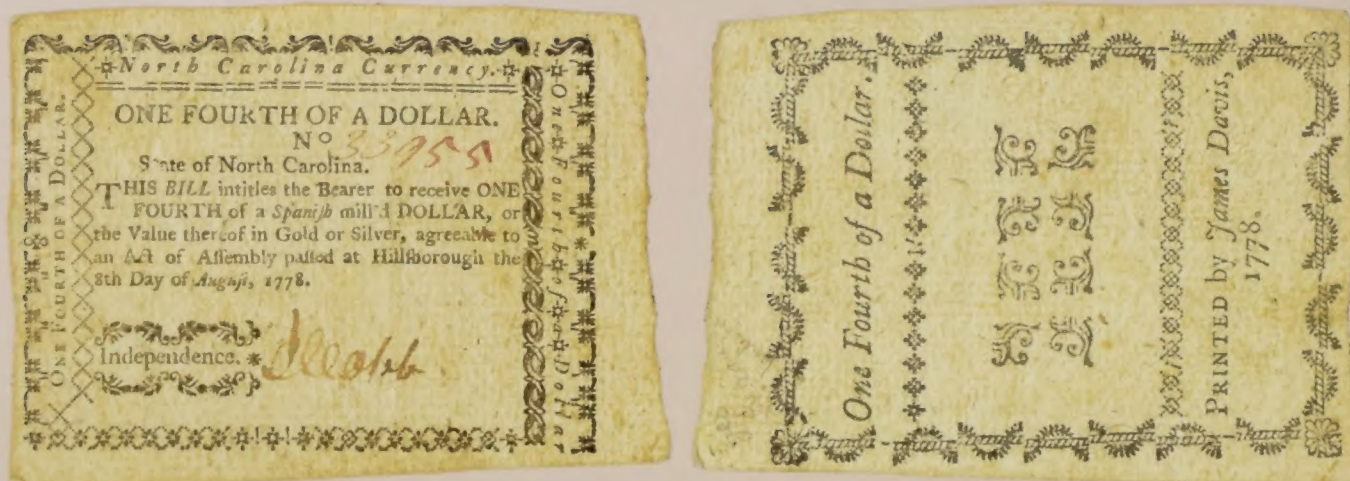 North Carolina Currency.
ONE FOURTH OF A DOLLAR.
No 33955
State of North Carolina.
THIS BILL intitles the Bearer to receive ONE
FOURTH of a Spaniſh mill'd DOLLAR, or
the Value thereof in Gold or Silver, agreeable to
an Act of Aſſembly paſſed at Hillſborough the
8th Day of Auguſt, 1778.
Independence.
ONE FOURTH OF A DOLLAR.
One Fourth of a Dollar
One Fourth of a Dollar.
PRINTED by James Davis,
1778.